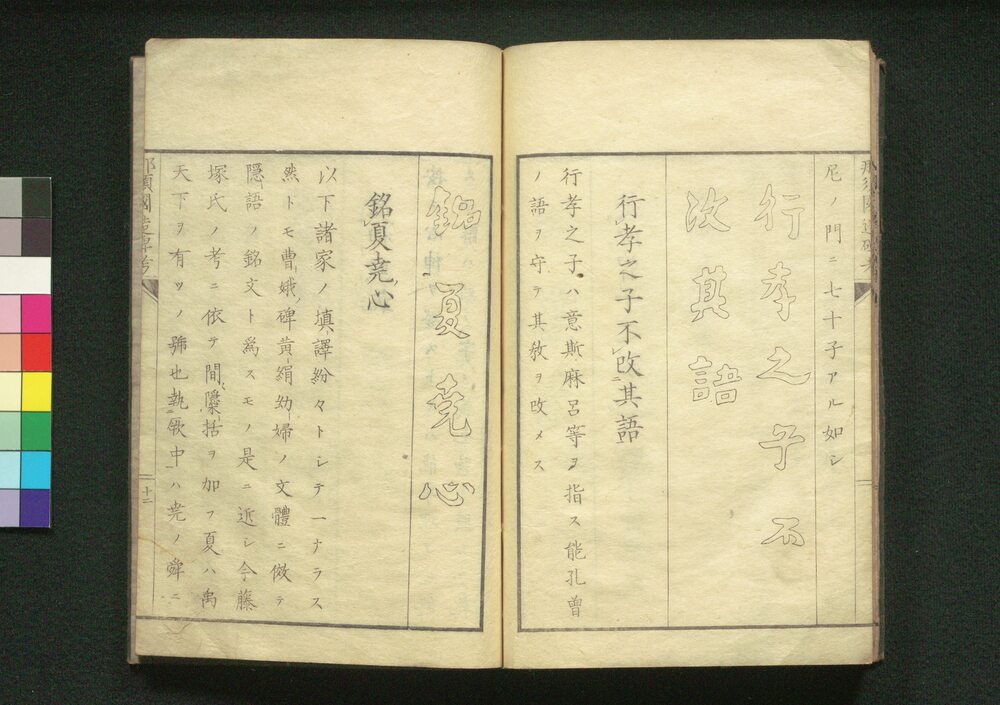 尼ノ門ニ七十子アル如シ
行孝之子不
改其語
行孝之子不改其語
行孝之子ハ意斯麻呂等ヲ指ス能孔曾
ノ語ヲ守テ其敎ヲ改メス
銘夏尭心
銘夏尭心
以下諸家ノ填譯紛々トシテ一ナラス
然トモ曹娥碑黄絹幼婦ノ文體ニ傚テ
隠語ノ銘文ト爲スモノ是ニ近シ今藤
塚氏ノ考ニ依テ間檃括ヲ加フ夏ハ禹
天下ヲ有ツノ號也執厥中ハ尭ノ舜ニ
那須國造碑考
十二